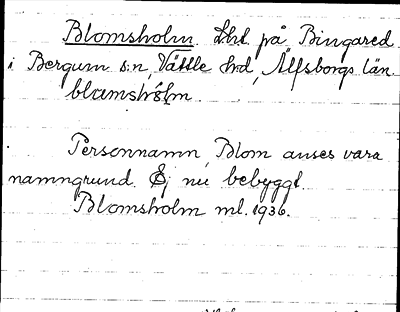 Blomsholm Lht på Bingared
i Bergum s:n, Vättle hd, Älfsborgs län.
blamshólm
Personnamn, Blom anses vara
namngrund. Ej nu bebyggt.
Blomsholm ml. 1936.